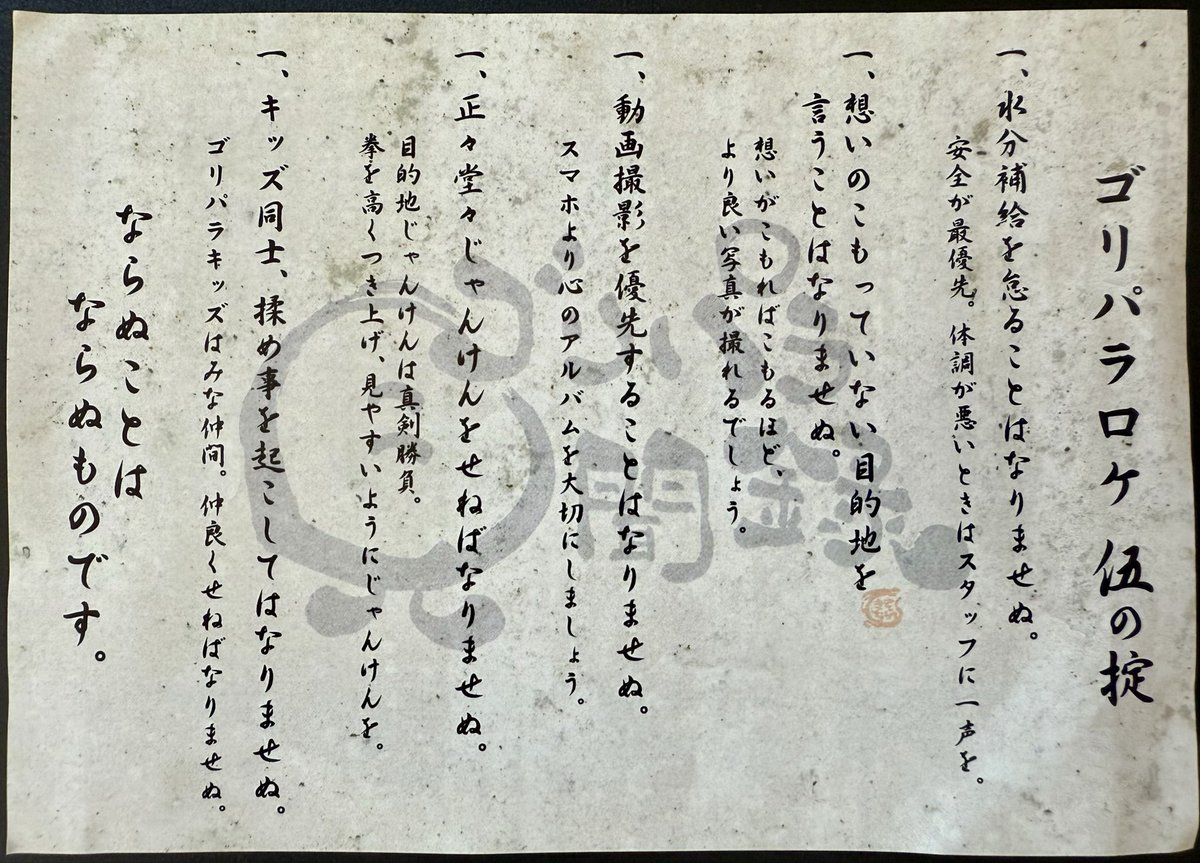 ゴリパラロケ 伍の掟
一、水分補給を怠ることはなりませぬ。
安全が最優先。体調が悪いときはスタッフに一声を。
一、想いのこもっていない目的地を
言うことはなりませぬ。
想いがこもればこもるほど、
より良い写真が撮れるでしょう。
一、動画撮影を優先することはなりませぬ。
スマホより心のアルバムを大切にしましょう。
一、正々堂々じゃんけんをせねばなりませぬ。
目的地じゃんけんは真剣勝負。
拳を高くつき上げ、見やすいようにじゃんけんを。
一、キッズ同士、揉め事を起こしてはなりませぬ。
ゴリパラキッズはみな仲間。仲良くせねばなりませぬ。
ならぬことは
ならぬものです。
ゴリパラ
見聞録